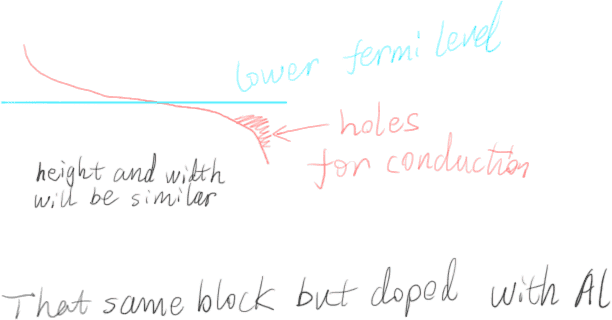 lower fermi level
holes
for conduction
height and width
will be similar
That same block but doped with AL